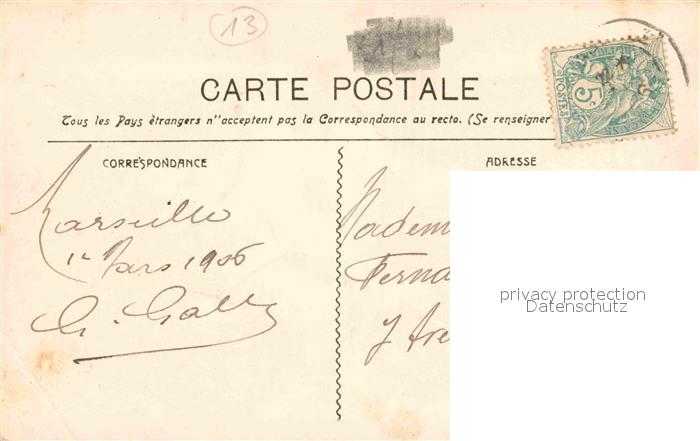 13
CARTE POSTALE
Tous les Pays étrangers n''acceptent pas la Correspondance au recto. (Se renseigner
5c
POSTES
CORRESPONDANCE
ADRESSE
Marseille
1er Mars 1906
Madem
Ferna
privacy protection
Datenschutz